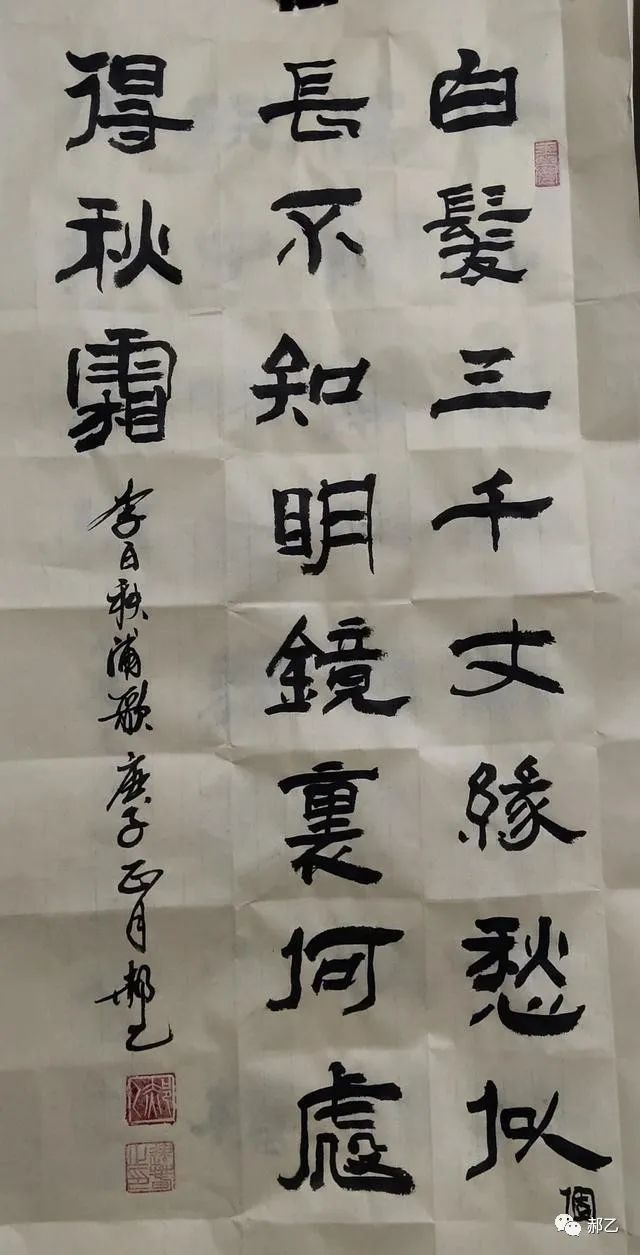 白髮三千丈緣愁似個
長不知明鏡裏何處
得秋霜
李白秋浦歌 庚子正月 郝乙
郝乙